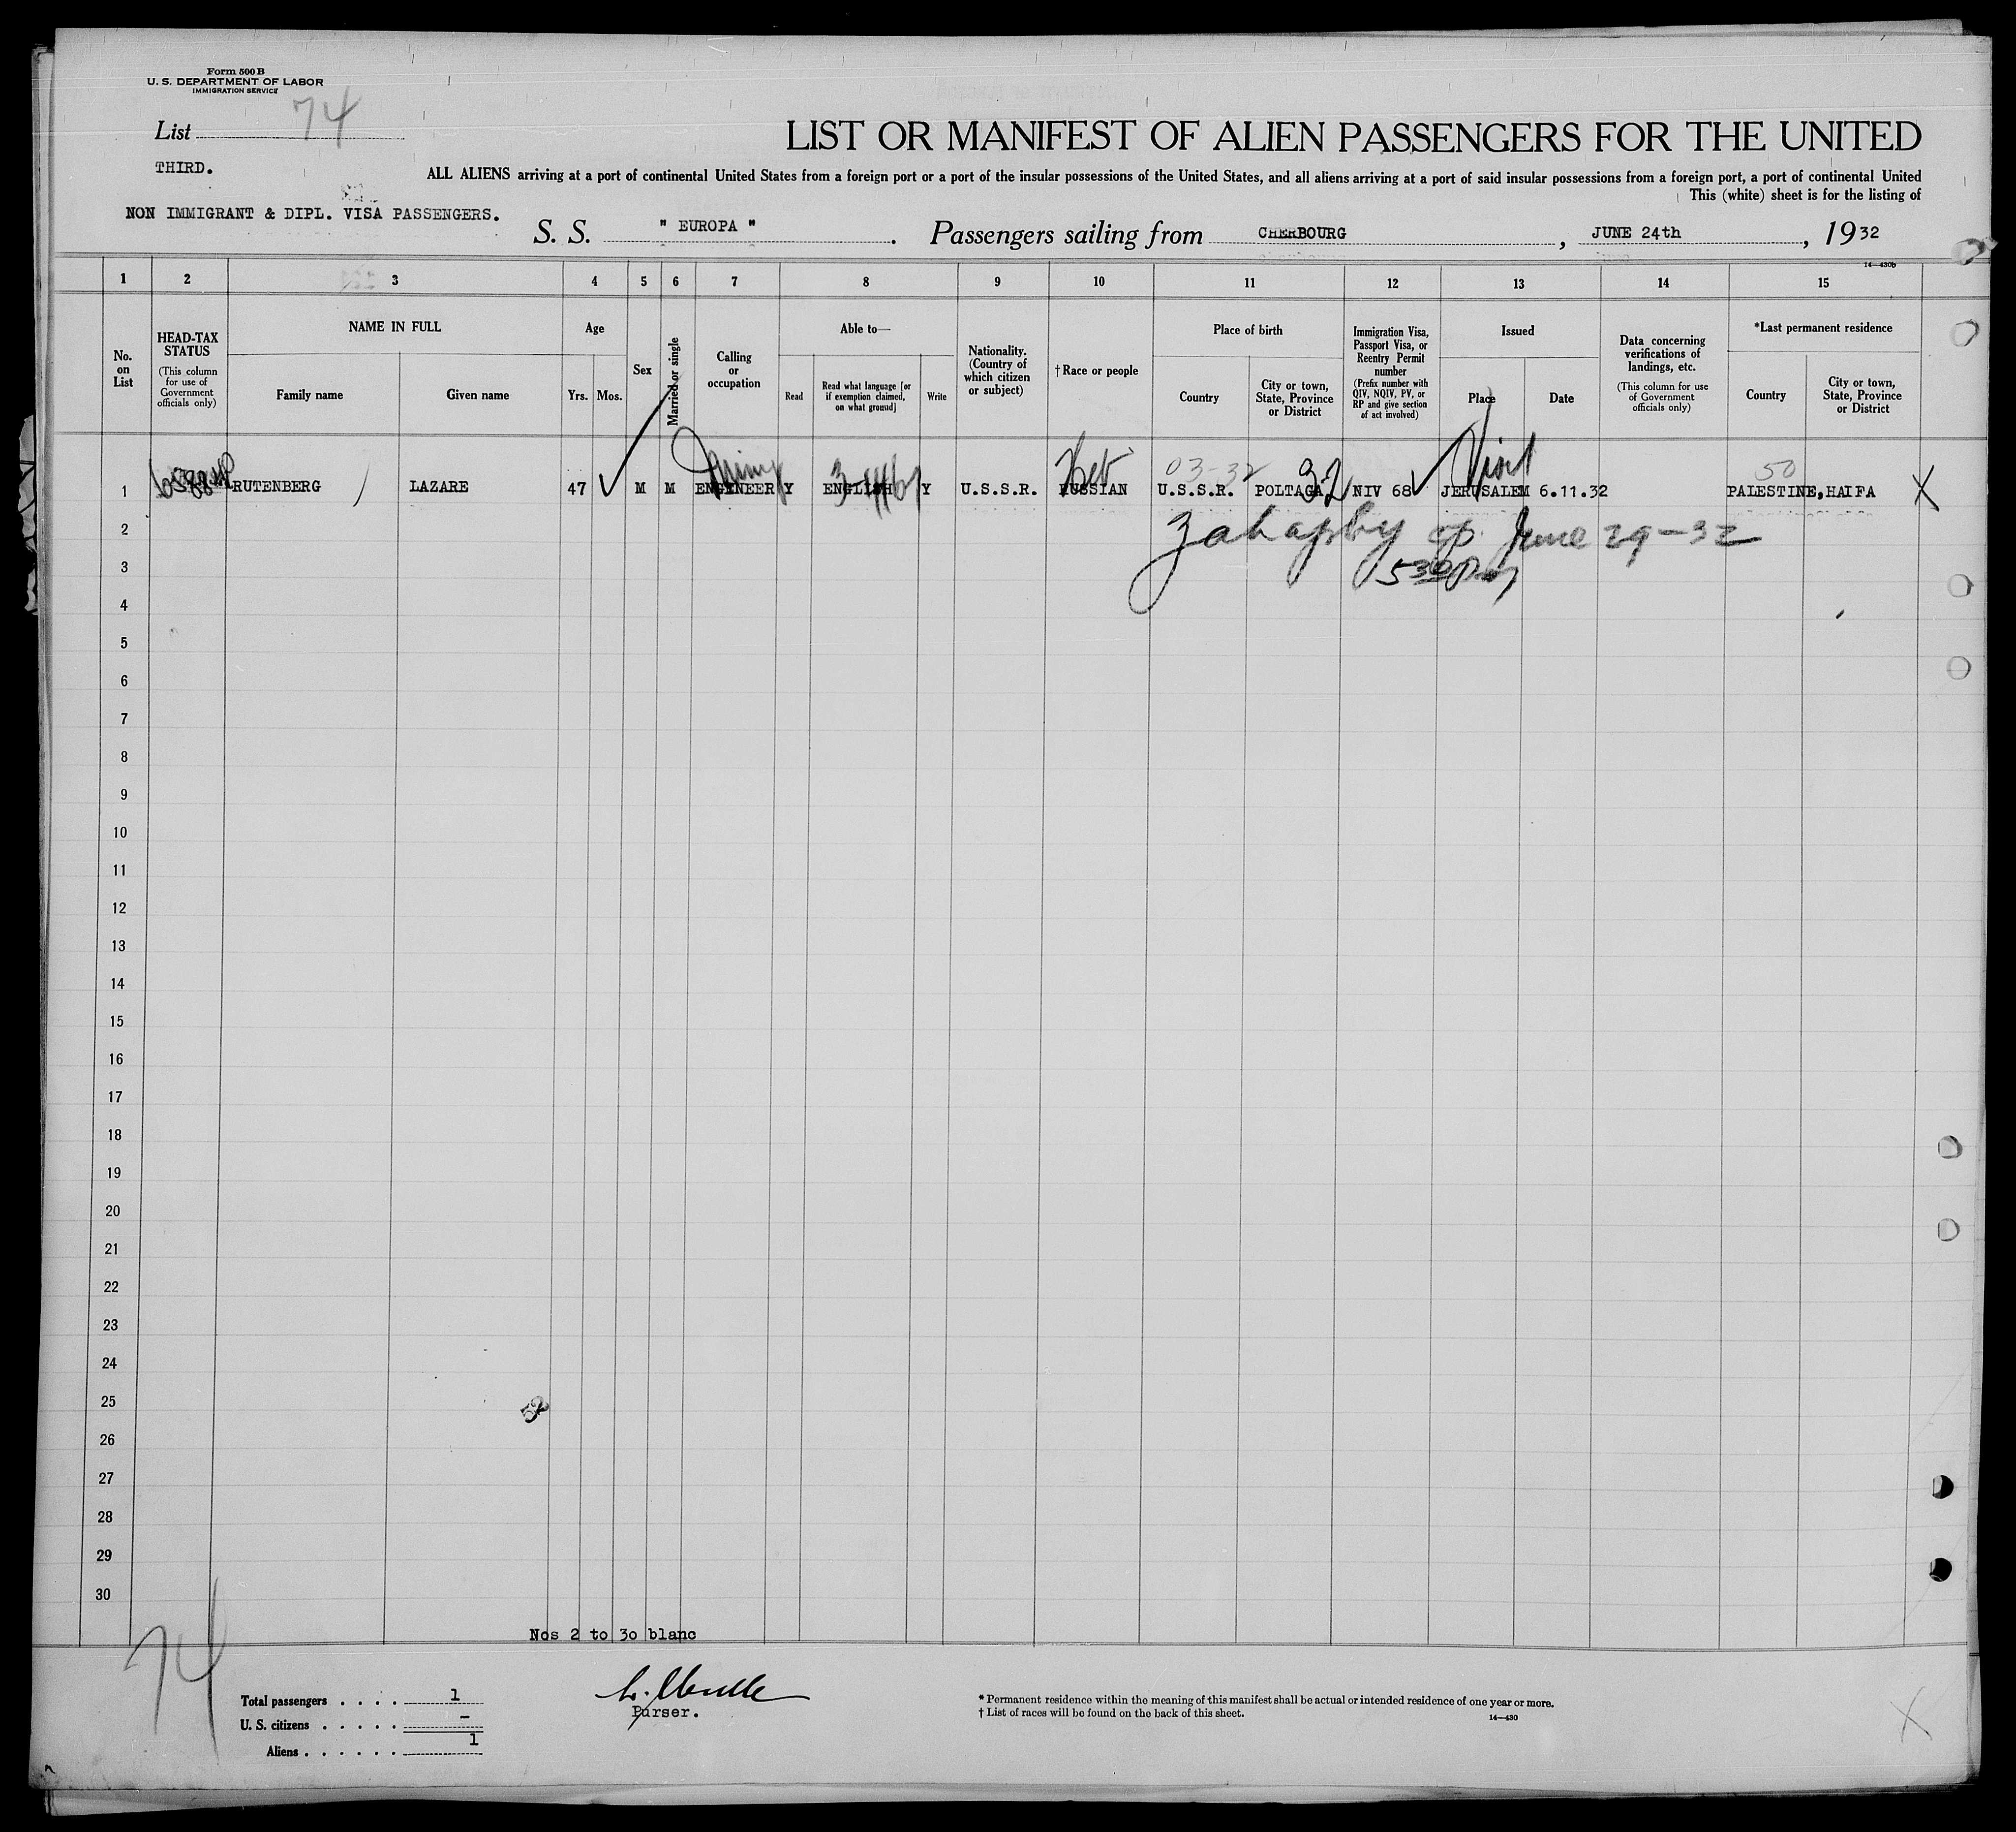 Form 500 B
U. S. DEPARTMENT OF LABOR
IMMIGRATION SERVICE
List 74
THIRD.
LIST OR MANIFEST OF ALIEN PASSENGERS FOR THE UNITED
ALL ALIENS arriving at a port of continental United States from a foreign port or a port of the insular possessions of the United States, and all aliens arriving at a port of said insular possessions from a foreign port, a port of continental United
This (white) sheet is for the listing of
NON IMMIGRANT & DIPL. VISA PASSENGERS.
S. S. " EUROPA ". Passengers sailing from CHERBOURG, JUNE 24th, 1932
14—430b
1 2 3 4 5 6 7 8 9 10 11 12 13 14 15
No. on List
HEAD-TAX STATUS (This column for use of Government officials only)
NAME IN FULL
Family name
Given name
Age
Yrs. Mos.
Sex
Married or single
Calling or occupation
Able to—
Read
Read what language [or if exemption claimed, on what ground]
Write
Nationality. (Country of which citizen or subject)
†Race or people
Place of birth
Country
City or town, State, Province or District
Immigration Visa, Passport Visa, or Reentry Permit number (Prefix number with QIV, NQIV, PV, or RP and give section of act involved)
Issued
Place
Date
Data concerning verifications of landings, etc. (This column for use of Government officials only)
*Last permanent residence
Country
City or town, State, Province or District
Heb 03-32 32 Visit 50
1 RUTENBERG LAZARE 47 M M ENGINEER Y ENGLISH Y U.S.S.R. RUSSIAN U.S.S.R. POLTAGA NIV 68 JERUSALEM 6.11.32 PALESTINE,HAIFA X
2 June 29-32
3 5 30
4
5
6
7
8
9
10
11
12
13
14
15
16
17
18
19
20
21
22
23
24
25
52
26
27
28
29
30
Nos 2 to 30 blanc
74
Total passengers . . . . 1
U. S. citizens . . . . . –
Aliens . . . . . . 1
Purser.
* Permanent residence within the meaning of this manifest shall be actual or intended residence of one year or more.
† List of races will be found on the back of this sheet.
14—430
X